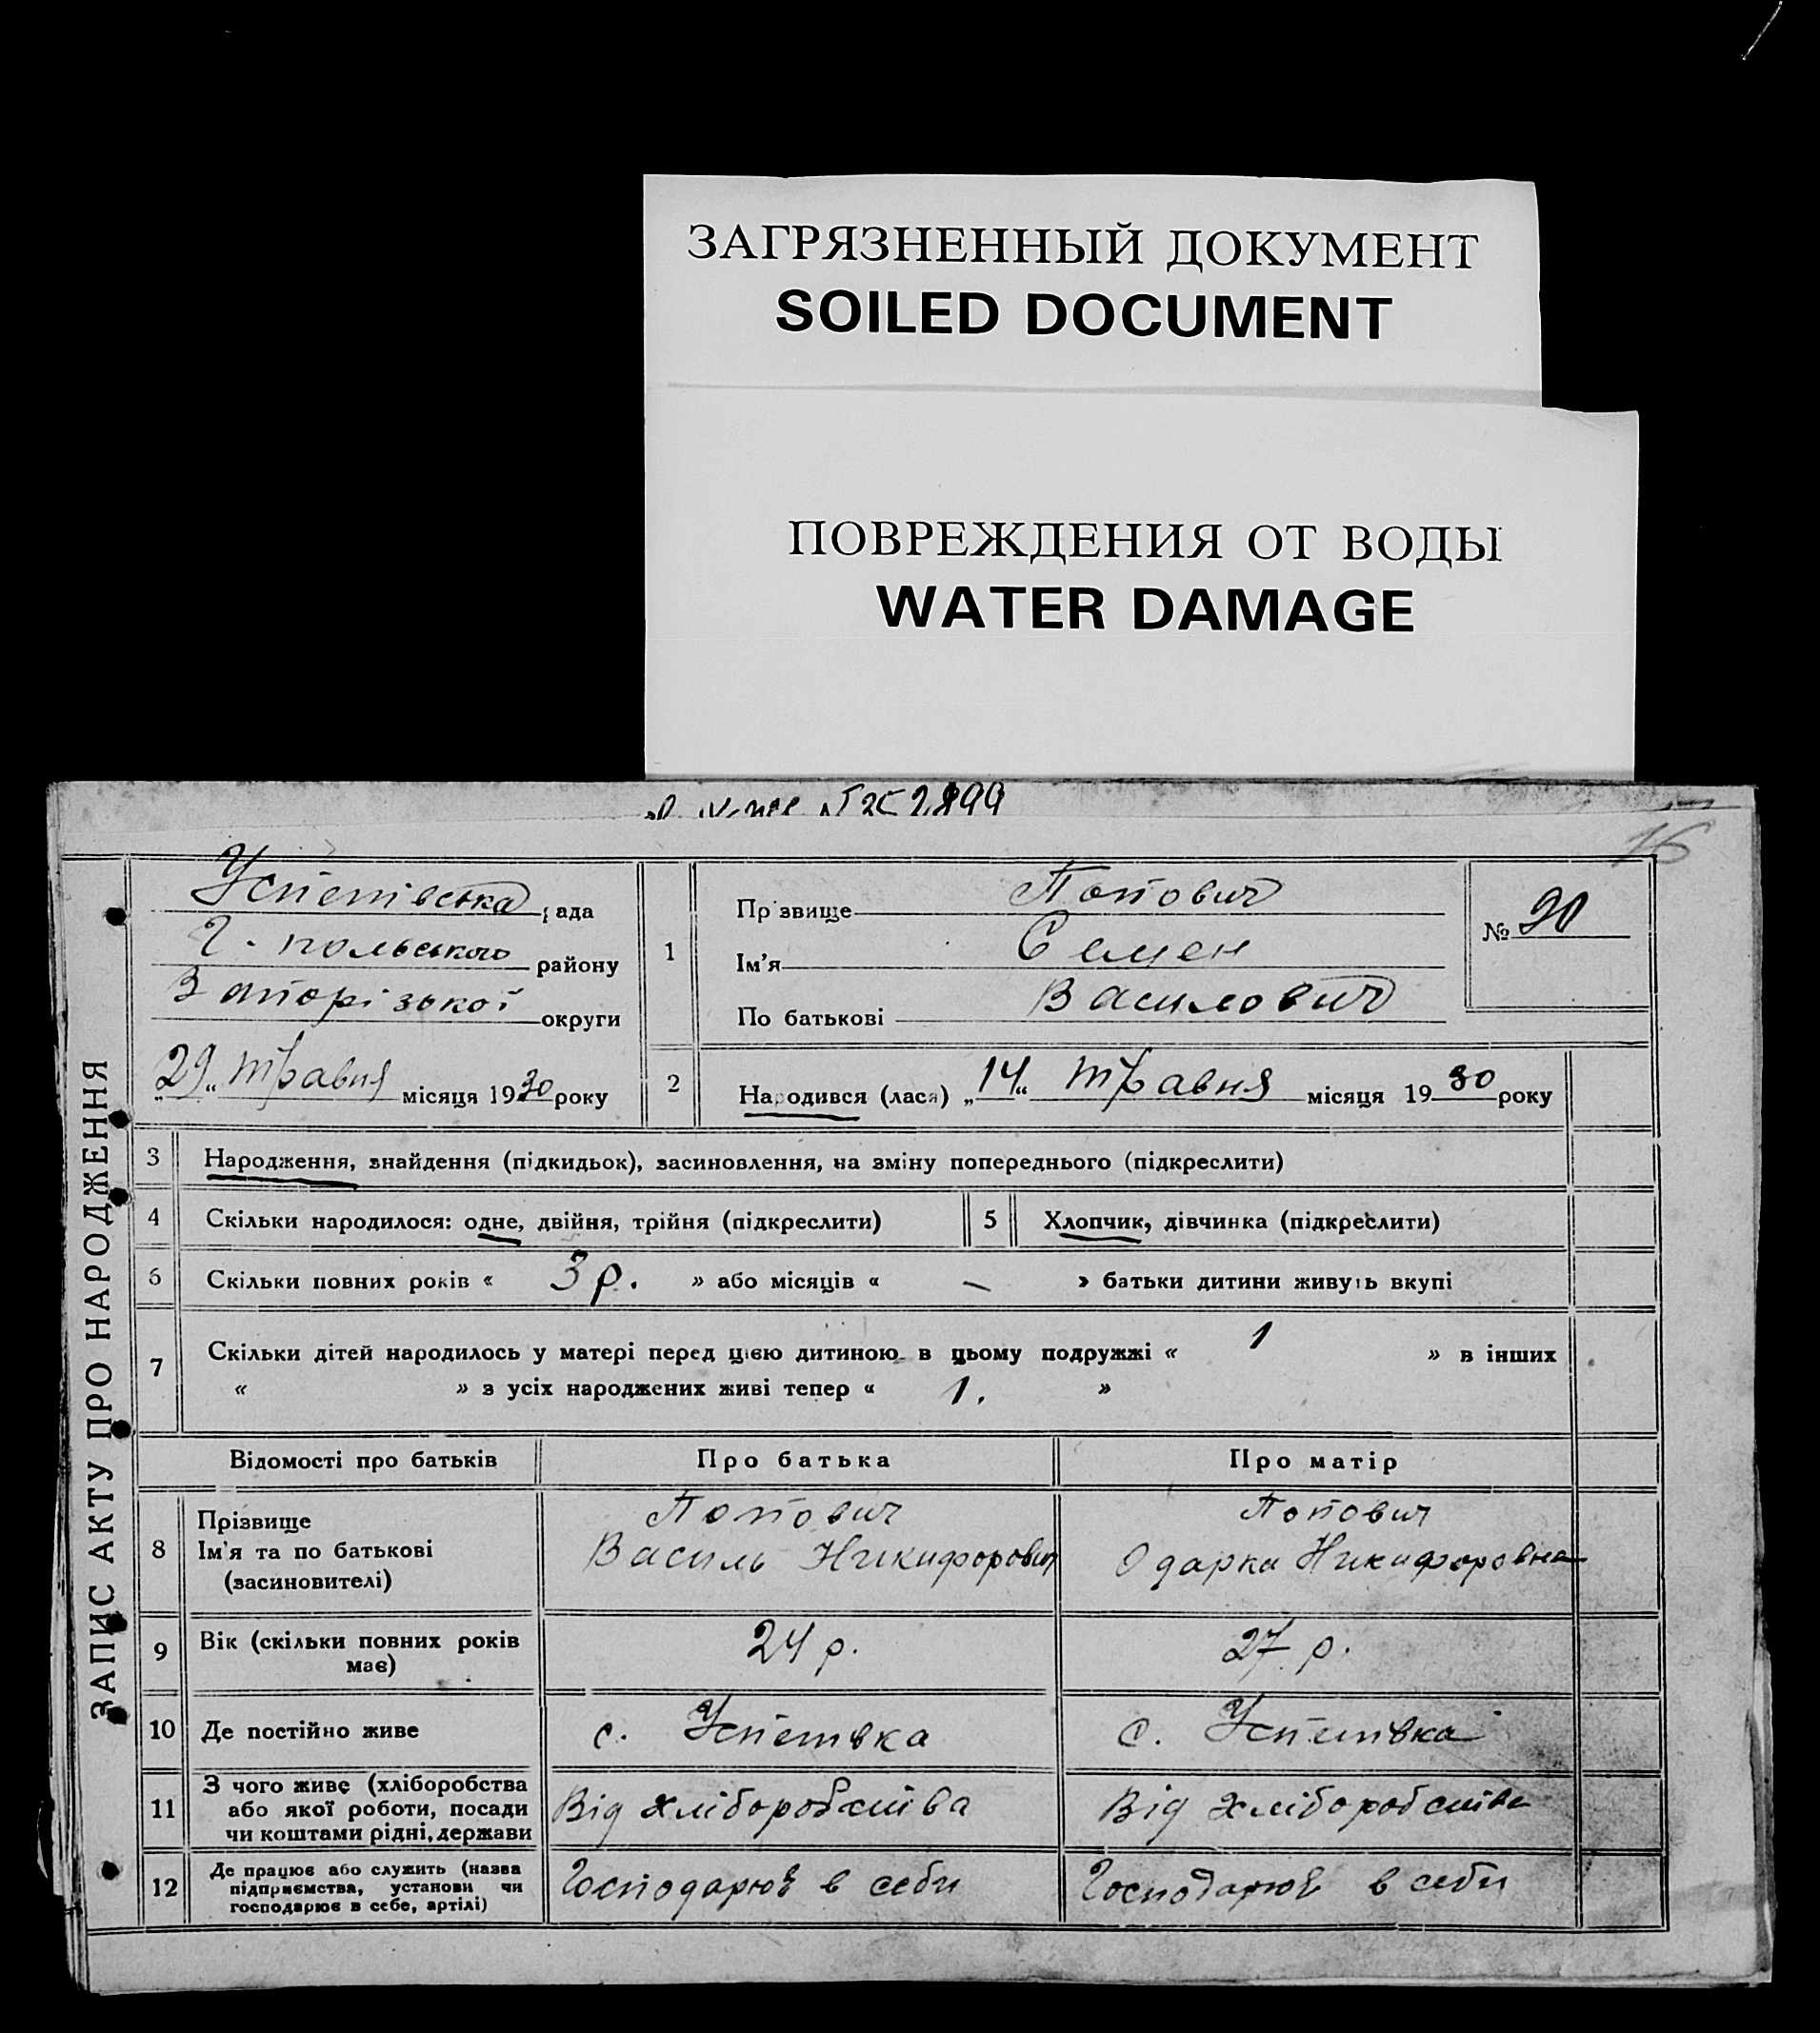 ЗАГРЯЗНЕННЫЙ ДОКУМЕНТ
SOILED DOCUMENT
ПОВРЕЖДЕНИЯ ОТ ВОДЫ
WATER DAMAGE
2899
16
ЗАПИС АКТУ ПРО НАРОДЖЕННЯ
Успенівська рада
Г. польського району
Запорізької округи
„29“ травня місяця 1930 року
1
Прізвище Попович
Ім'я Семен
По батькові Василович
№ 90
2
Народився (лася) „14“ травня місяця 1930 року
3 Народження, знайдення (підкидьок), засиновлення, на зміну попереднього (підкреслити)
4 Скільки народилося: одне, двійня, трійня (підкреслити) 5 Хлопчик, дівчинка (підкреслити)
6 Скільки повних років « 3 р. » або місяців « — » батьки дитини живуть вкупі
7 Скільки дітей народилось у матері перед цією дитиною в цьому подружжі « 1 » в інших
« » з усіх народжених живі тепер « 1. »
Відомості про батьків Про батька Про матір
8 Прізвище Ім'я та по батькові (засиновителі) Попович Василь Никифорович Попович Одарка Никифоровна
9 Вік (скільки повних років має) 24 р. 27 р.
10 Де постійно живе с. Успенівка с. Успенівка
11 З чого живе (хліборобства або якої роботи, посади чи коштами рідні, держави Від хліборобства Від хліборобства
12 Де працює або служить (назва підприємства, установи чи господарює в себе, артілі) Господарює в себи Господарює в себи